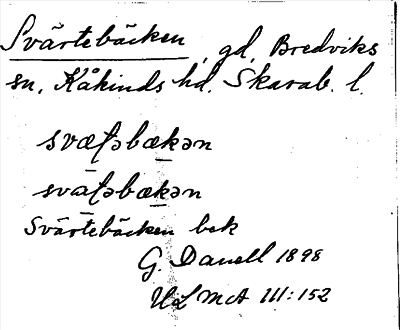 Svärtebäcken, gd, Bredviks
sn, Kåkinds hd. Skarab. l.
svætəbækən
svätəbækən
Svärtebäcken bek
G. Danell 1898
ULMA III:152